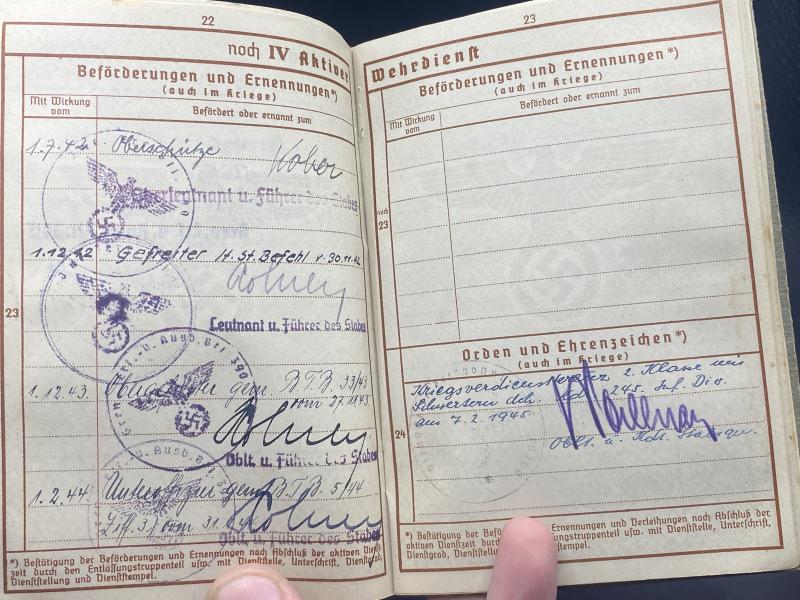 22
noch IV Aktiver
Beförderungen und Ernennungen*)
(auch im Kriege)
Mit Wirkung vom
Befördert oder ernannt zum
1.7.42 Oberschütze
Kober
Oberleutnant u. Führer des Stabes
1.12.42 Gefreiter H. St. Befehl v. 30.11.42
Leutnant u. Führer des Stabes
23
u. Ausb. Btl. 390
1.12.43 gem. B.T.B. 33/43
vom 27.11.43
Oblt. u. Führer des Stabes
u. Ausb. Btl.
1.2.44 Unteroffizier gem. B.T.B. 5/44
Ziff. 3) vom 31.
Oblt. u. Führer des Stabes
*) Bestätigung der Beförderungen und Ernennungen nach Abschluß der aktiven Dienst-
zeit durch den Entlassungstruppenteil usw. mit Dienstgrad,
Dienststellung und Dienststempel.
23
Wehrdienst
Beförderungen und Ernennungen*)
(auch im Kriege)
Mit Wirkung vom
Befördert oder ernannt zum
noch
23
Orden und Ehrenzeichen*)
(auch im Kriege)
Kriegsverdienstkreuz 2. Klasse mit
Schwertern dch. 245. Inf. Div.
am 7.2.1945
24
Oblt. u. Kdt. Stabsqu.
*) Bestätigung der Ernennungen und Verleihungen nach Abschluß der
aktiven Dienstzeit durch Entlassungstruppenteil usw. mit Dienststelle, Unterschrift,
Dienstgrad, Dienststellung und Dienststempel.